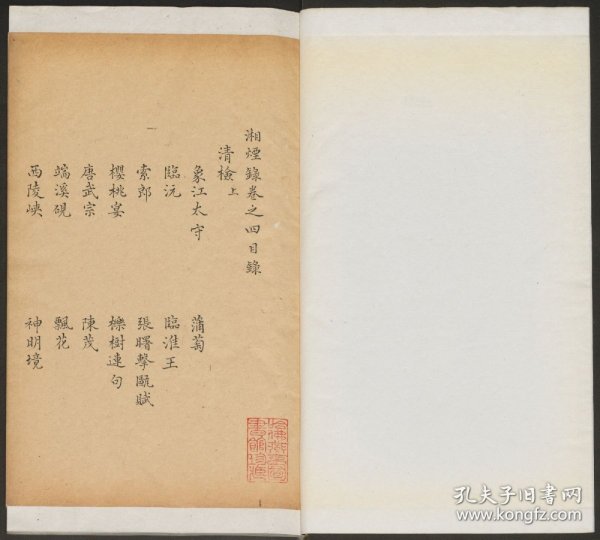 湘煙錄卷之四目錄
清檢上
象江太守 蒲萄
臨沅 臨淮王
索郎 張曙擊甌賦
櫻桃宴 櫟樹連句
唐武宗 陳茂
端溪硯 飄花
西陵峽 神明境
孔夫子旧书网
www.kongfz.com